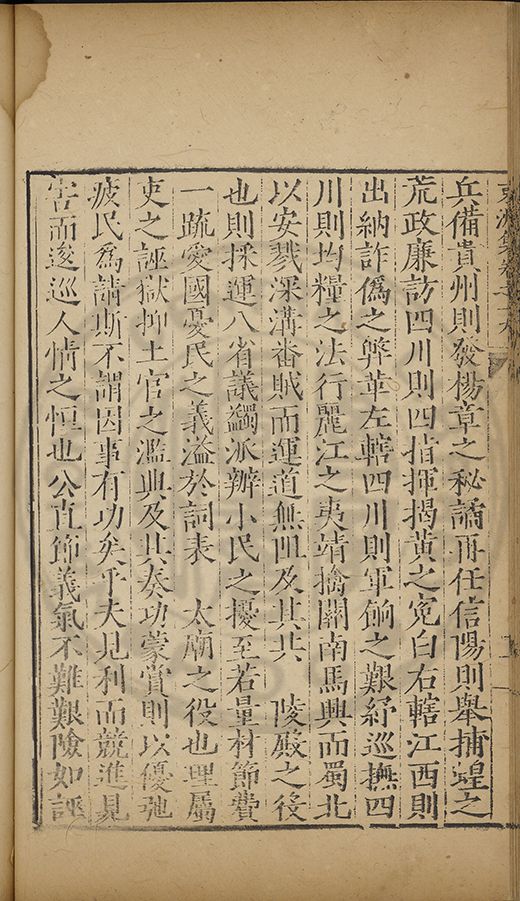 兵備貴州則發楊章之秘譎再任信陽則舉捕蝗之
荒政廉訪四川則四指揮揭黃之寃白右轄江西則
出納詐僞之獘革左轄四川則軍餉之艱紓巡撫四
川則均糧之法行麗江之夷靖擒關南馬興而蜀北
以安戮深溝畨賊而運道無阻及其共 陵殿之役
也則採運八省議蠲派辦小民之擾至若量材節費
一疏愛國憂民之義溢於詞表 太廟之役也理屬
吏之誣獄抑土官之濫典及其奏功蒙賞則以優弛
疲民爲請斯不謂因事有功矣乎夫見利而競進見
害而逡巡人情之恒也公直節義氣不難艱險如誣